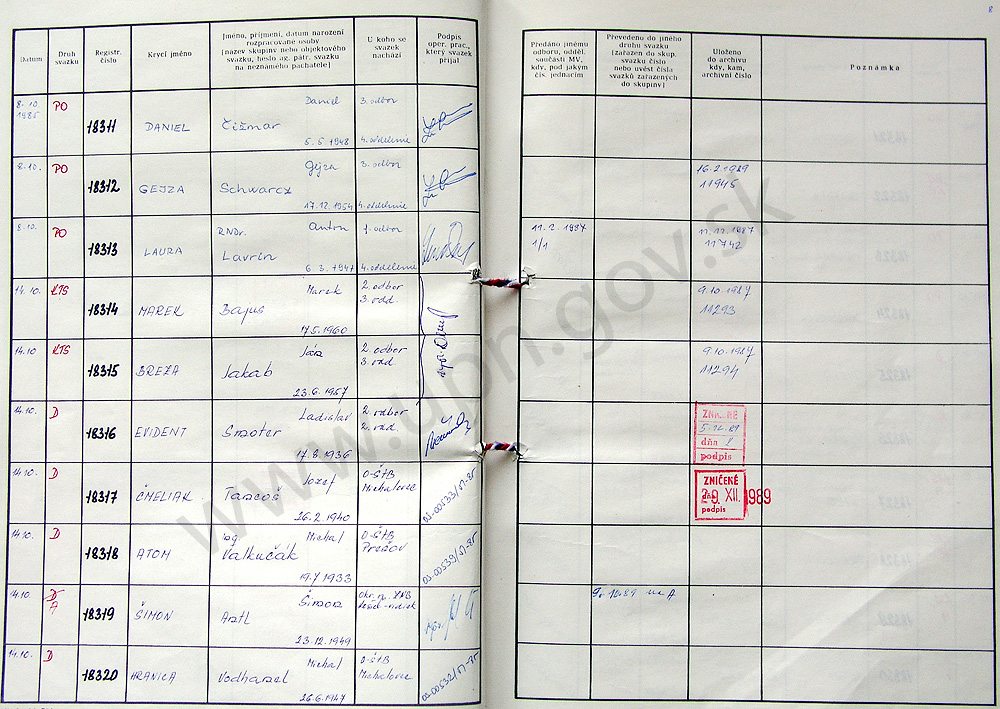 8
Datum
Druh svazku
Registr. číslo
Krycí jméno
Jméno, příjmení, datum narození
rozpracované osoby
[název skupiny nebo objektového
svazku, heslo ag. pátr. svazku
na neznámého pachatele]
U koho se svazek nachází
Podpis oper. prac., který svazek přijal
Předáno jinému
odboru, odděl.
součásti MV,
kdy, pod jakým
čís. jednacím
Převedeno do jiného
druhu svazku
[zařazen do skup.
svazku číslo
nebo uvést čísla
svazků zařazených
do skupiny]
Uloženo
do archivu
kdy, kam,
archivní číslo
Poznámka
8.10. 1985 PO 18311 DANIEL Daniel Čižmar 5.5.1948 3. odbor 4. oddelenie
8.10. PO 18312 GEJZA Gejza Schwarcz 17.12.1954 3. odbor 4. oddelenie 16.2.1989 11945
8.10. PO 18313 LAURA RNDr. Anton Lavrin 6.3.1947 1. odbor 4. oddelenie 11.2.1987 1/1 11.12.1987 11742
14.10. KTS 18314 MAREK Marek Bajus 17.5.1960 2. odbor 9.10.1987 11293
14.10 KTS 18315 BREZA Ján Jakab 23.6.1957 2. odbor 9.10.1987 11294
14.10. D 18316 EVIDENT Ladislav 17.8.1936 2. odbor
ZNIČENÉ
5.12.89
dňa
podpis
14.10. D 18317 ČMELIAK Jozef Tancoš 26.2.1940 O-ŠTB Michalovce OS-00533/01-85
ZNIČENÉ
29. XII. 1989
podpis
14.10. D 18318 ATOM Ing. Michal Valkučák 19.7.1933 O-ŠTB Prešov
14.10. D A 18319 ŠIMON Šimon Antl 23.12.1949
14.10. D 18320 HRANICA Michal 26.6.1947 O-ŠTB Michalovce OS-00532/01-85
www.upn.gov.sk